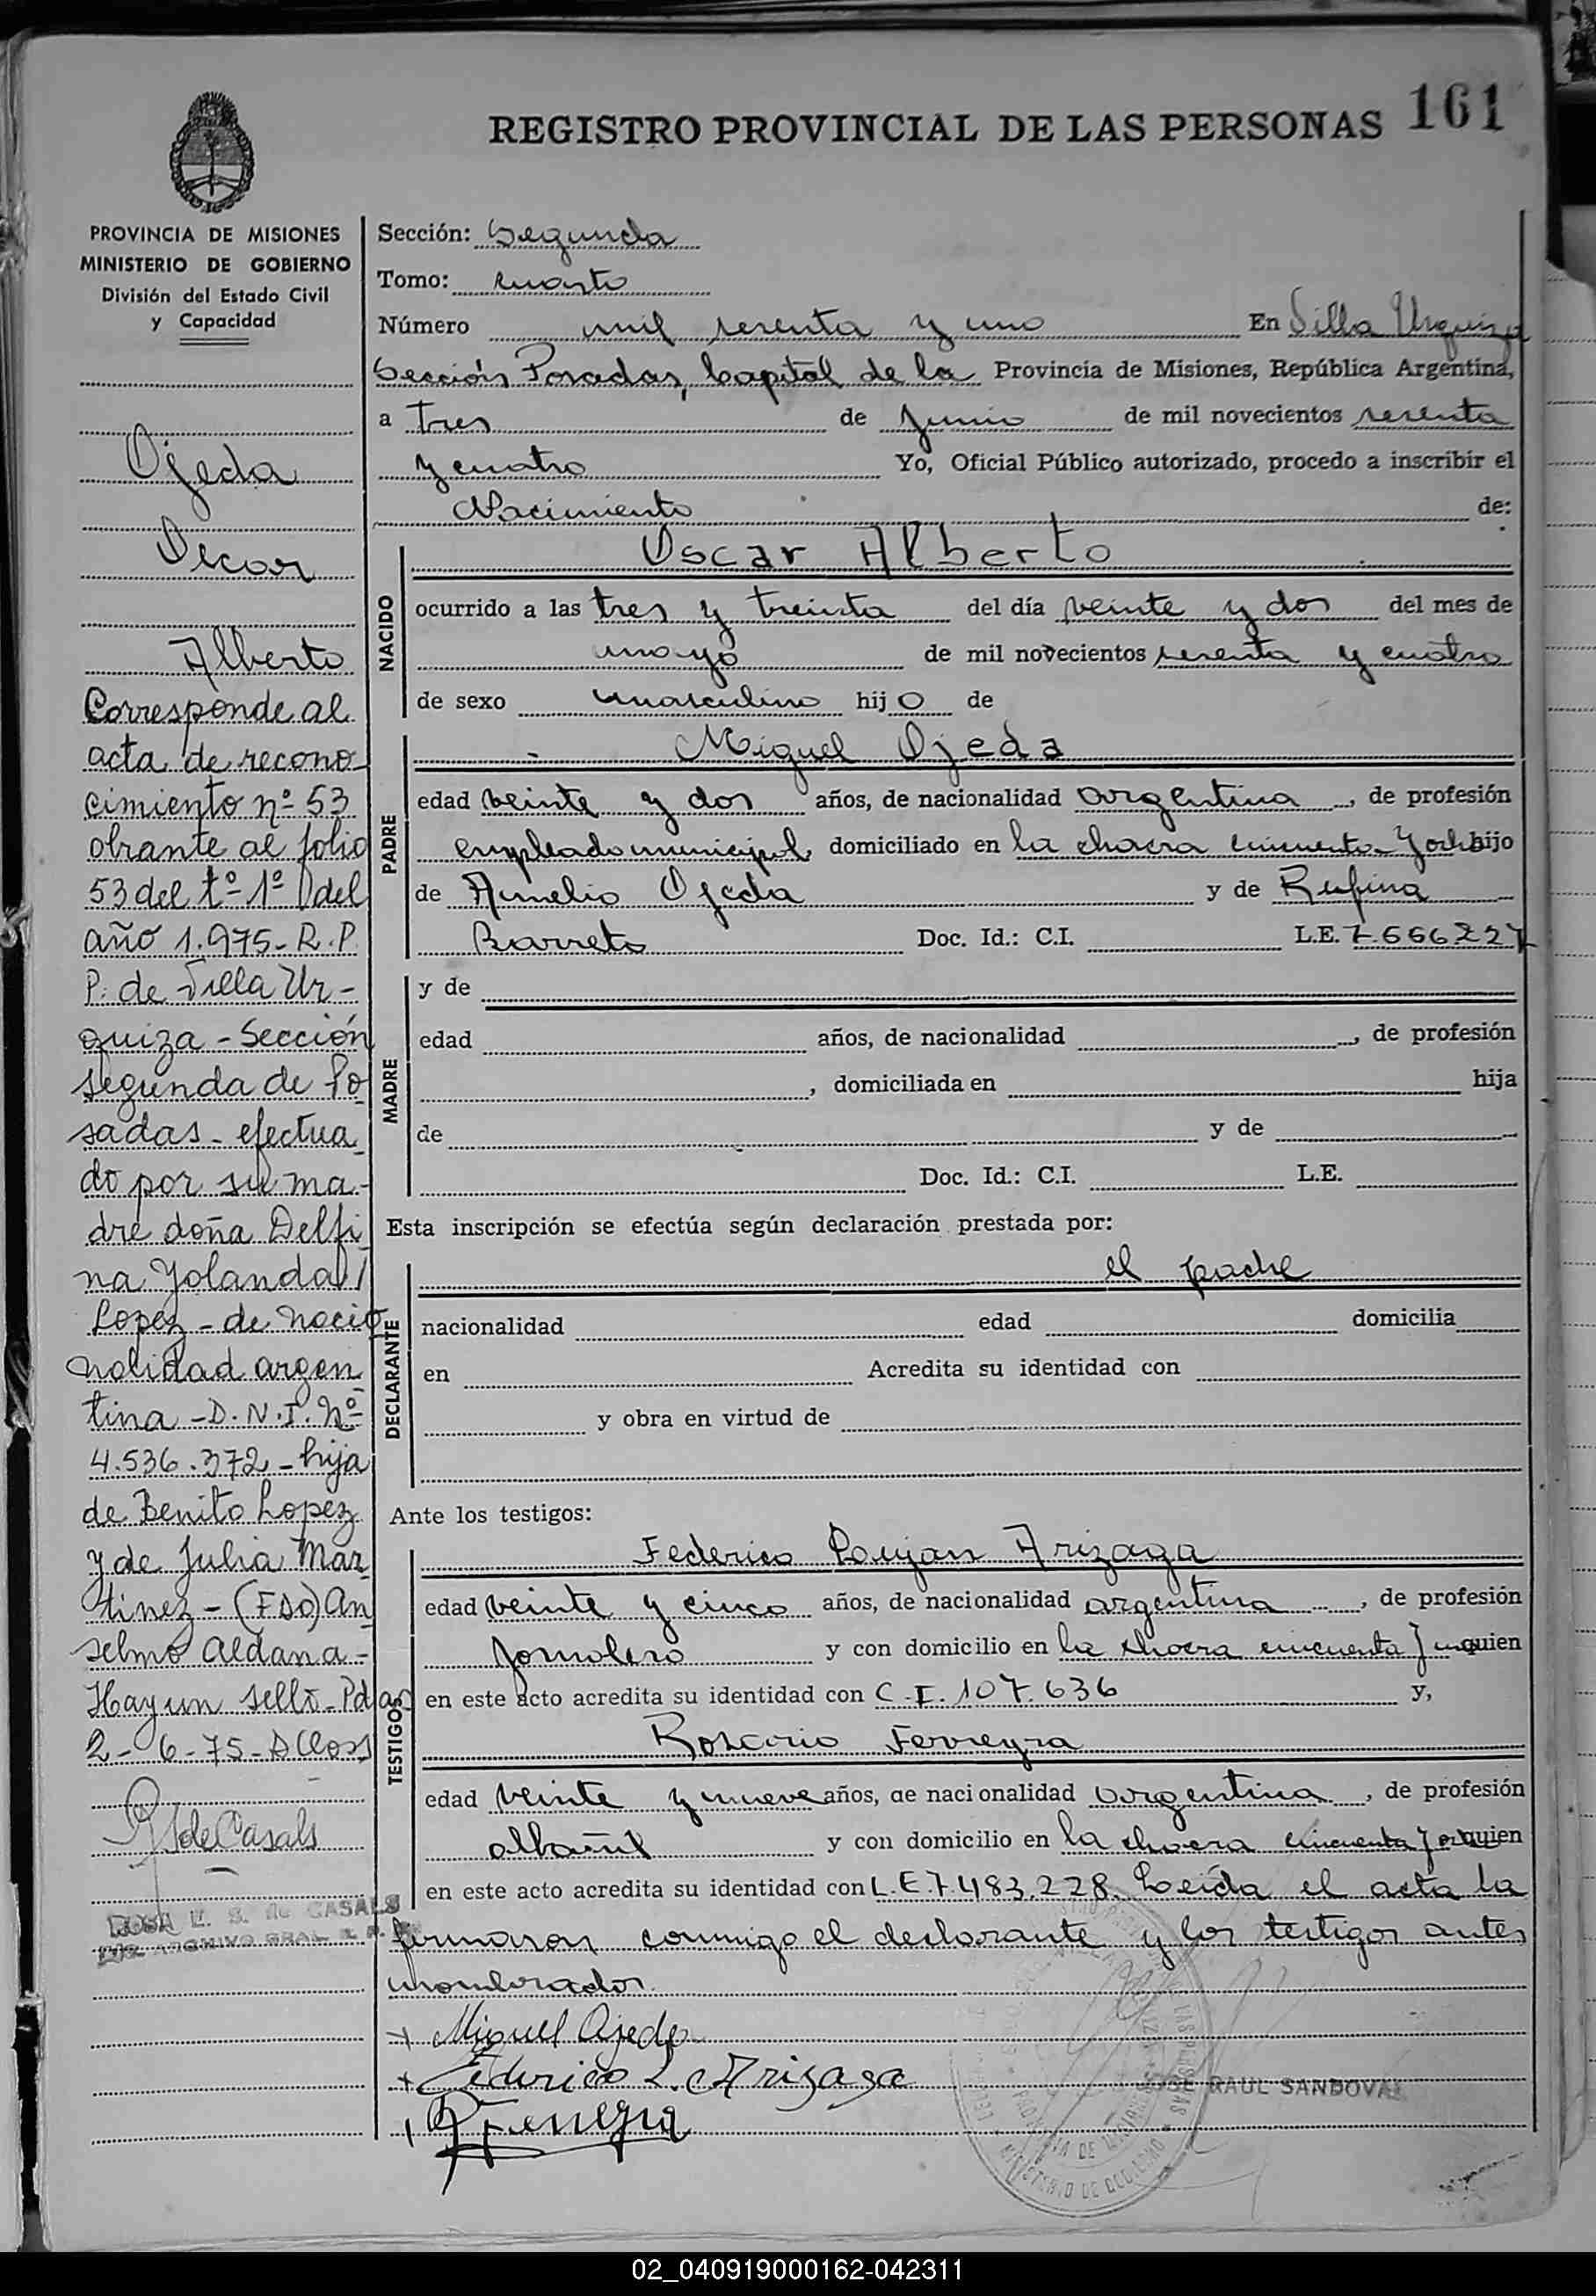 REGISTRO PROVINCIAL DE LAS PERSONAS 161
PROVINCIA DE MISIONES
MINISTERIO DE GOBIERNO
División del Estado Civil
y Capacidad
Ojeda
Oscar
Alberto
Corresponde al
acta de recono-
cimiento nº 53
obrante al folio
53 del tº 1º del
año 1.975- R.P.
P. de Villa Ur-
quiza - Sección
segunda de Po-
sadas - efectua
do por su ma-
dre doña Delfi
na Yolanda
Lopez - de nacio
nalidad argen
tina - D.N.I. Nº
4.536.372 - hija
de Benito Lopez
y de Julia Mar
tinez - (FDO) An
selmo Aldana -
Hay un sello - Pdas
2-6-75-
R S de Casals
ROSA E. S. de CASALS
ARCHIVO GRAL. R. P.
Sección: Segunda
Tomo: cuarto
Número mil sesenta y uno En Villa Urquiza
Sección Posadas, Capital de la Provincia de Misiones, República Argentina,
a tres de Junio de mil novecientos sesenta
y cuatro Yo, Oficial Público autorizado, procedo a inscribir el
Nacimiento de:
NACIDO
Oscar Alberto
ocurrido a las tres y treinta del día veinte y dos del mes de
mayo de mil novecientos sesenta y cuatro
de sexo masculino hijo de
PADRE
Miguel Ojeda
edad veinte y dos años, de nacionalidad argentina, de profesión
empleado municipal, domiciliado en la chacra cincuenta hijo
de Aurelio Ojeda y de Rufina
Barreto Doc. Id.: C.I. L.E. 7.666227
MADRE
y de
edad años, de nacionalidad , de profesión
, domiciliada en hija
de y de
Doc. Id.: C.I. L.E.
Esta inscripción se efectúa según declaración prestada por:
DECLARANTE
el padre
nacionalidad edad domicilia
en Acredita su identidad con
y obra en virtud de
Ante los testigos:
TESTIGOS
Federico Lujan Arizaga
edad veinte y cinco años, de nacionalidad argentina, de profesión
Jornalero y con domicilio en la chacra cincuenta quien
en este acto acredita su identidad con C.I. 107.636 y,
Rosario Ferreyra
edad veinte y nueve años, de nacionalidad argentina, de profesión
albañil y con domicilio en la chacra cincuenta quien
en este acto acredita su identidad con L.E.7.483.228. Leída el acta la
firmaron conmigo el declarante y los testigos antes
nombrados.
+ Miguel Ojeda
+ Federico L. Arizaga
R Ferreyra
JOSE RAUL SANDOVAL
02_040919000162-042311